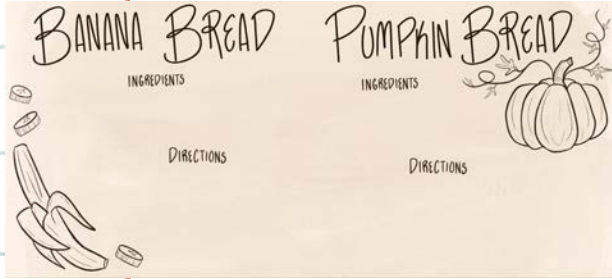 BANANA BREAD
INGREDIENTS
DIRECTIONS
PUMPKIN BREAD
INGREDIENTS
DIRECTIONS